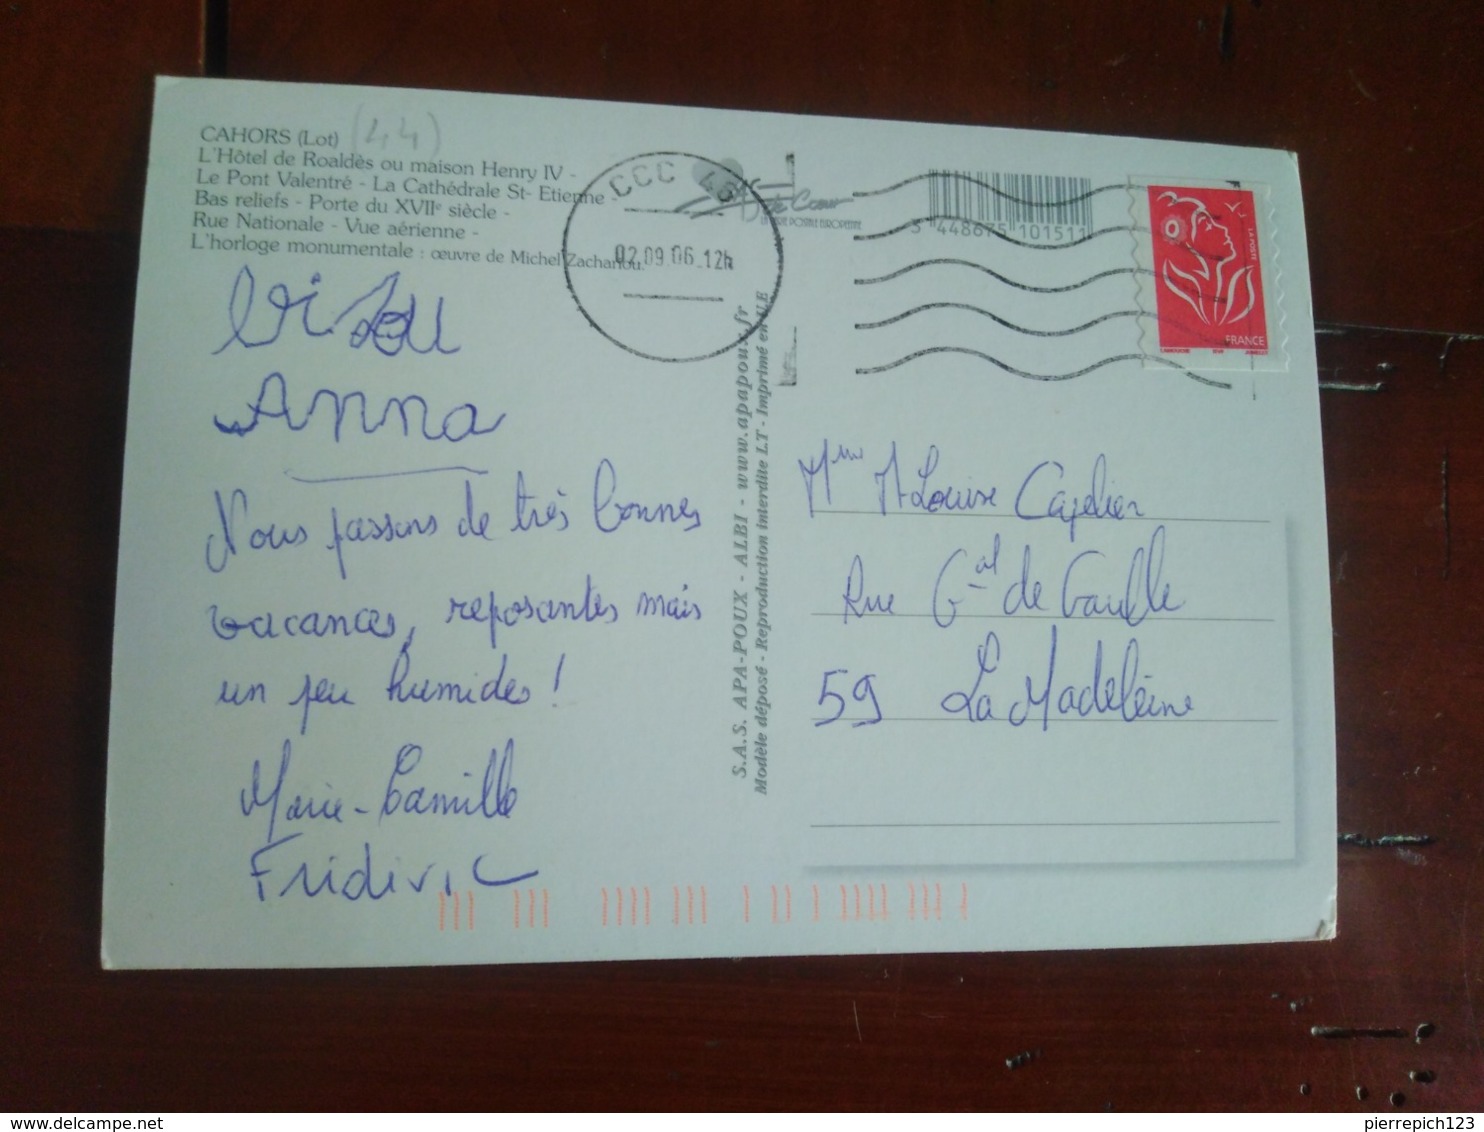 CAHORS (Lot) (44)
L'Hôtel de Roaldès ou maison Henry IV -
Le Pont Valentré - La Cathédrale St- Etienne -
Bas reliefs - Porte du XVIIe siècle -
Rue Nationale - Vue aérienne -
L'horloge monumentale : œuvre de Michel Zachariou.
CCC 46
02.09.06 12h
LA CARTE POSTALE EUROPEENNE
3 448675 101511
LA POSTE
FRANCE
Anna
Nous passons de très bonnes
vacances, reposantes mais
un peu humides !
Marie-Camille
S.A.S. APA-POUX - ALBI - www.apapoux.fr
Modèle déposé - Reproduction interdite LT - Imprimé en UE
Mme M Louise Capelier
Rue Gal de Gaulle
59 La Madeleine
pierrepich123